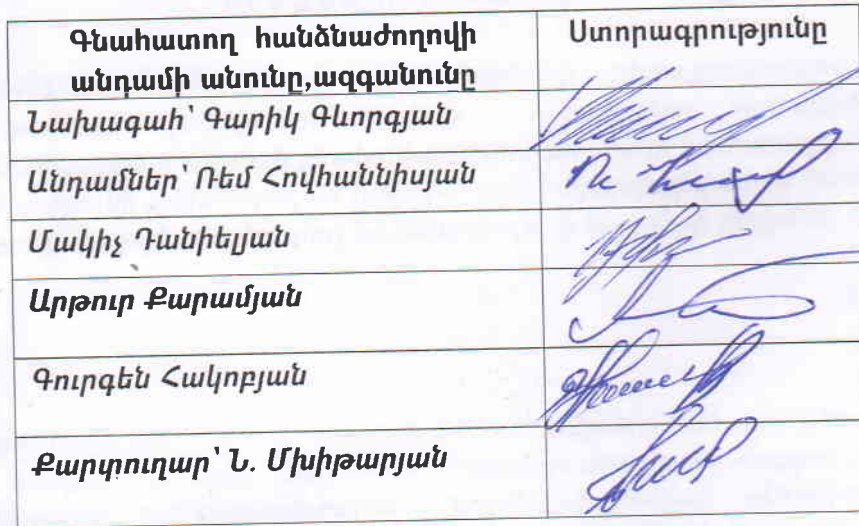 Գնահատող հանձնաժողովի
անդամի անունը,ազգանունը
Ստորագրությունը
Նախագահ՝ Գարիկ Գևորգյան
Անդամներ՝ Ռեմ Հովհաննիսյան
Մակիչ Դանիելյան
Արթուր Քարամյան
Գուրգեն Հակոբյան
Քարտուղար՝ Ն. Մխիթարյան